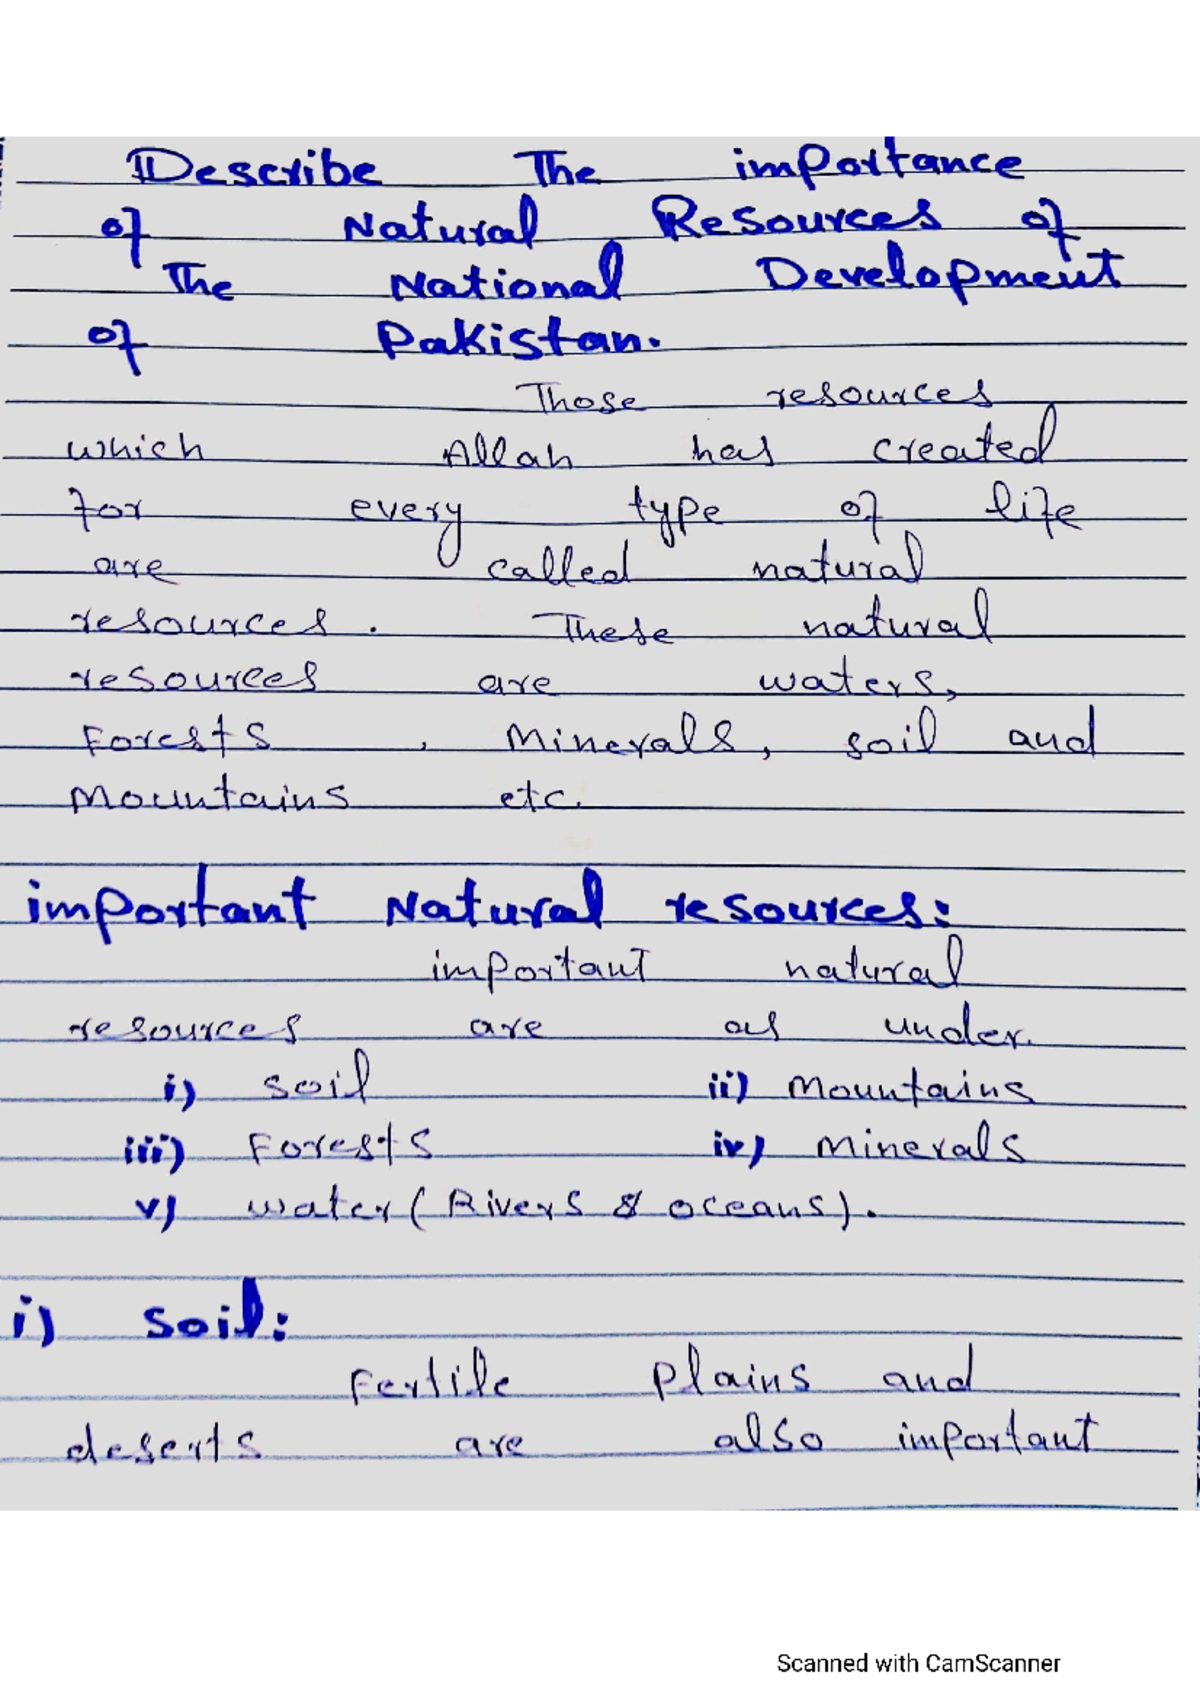 Describe The importance
of Natural Resources of
The National Development
of Pakistan.
Those resources
which Allah has created
for every type of life
are called natural
resources. These natural
resources are waters,
Forests, Minerals, soil and
Mountains etc.
important Natural resources:
important natural
resources are as under.
i) soil ii) Mountains
iii) Forests iv) Minerals
v) water (Rivers & oceans).
i) soil:
Fertile Plains and
deserts are also important
Scanned with CamScanner